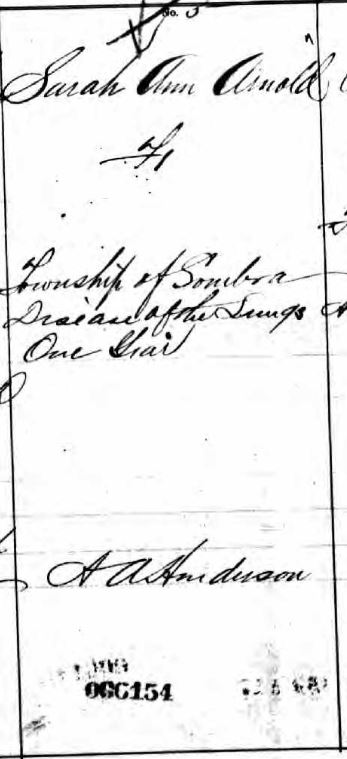 No. 5
Sarah Ann Arnold
F,
Township of Sombra
Disease of the Lungs
One Year
A A Anderson
006154